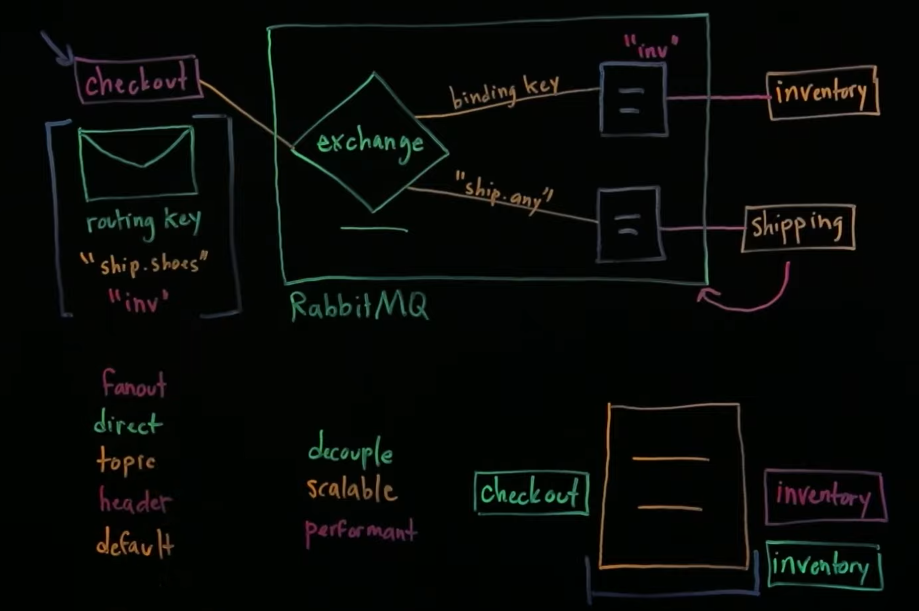 checkout
routing key
"ship.shoes"
"inv"
exchange
binding key
"ship.any"
"inv"
inventory
shipping
RabbitMQ
fanout
direct
topic
header
default
decouple
scalable
performant
checkout
inventory
inventory